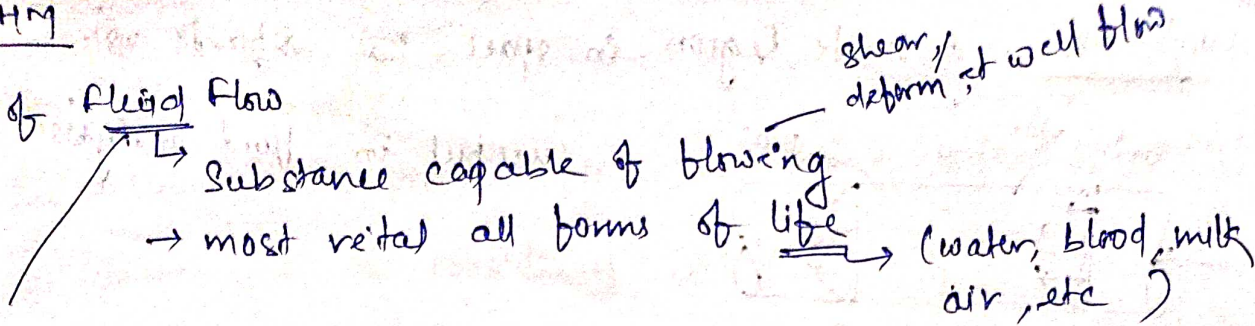 HM
of Fluid Flow
shear,
deform, it will flow
Substance capable of flowing.
→ most vital all forms of life
(water, blood, milk
air, etc)